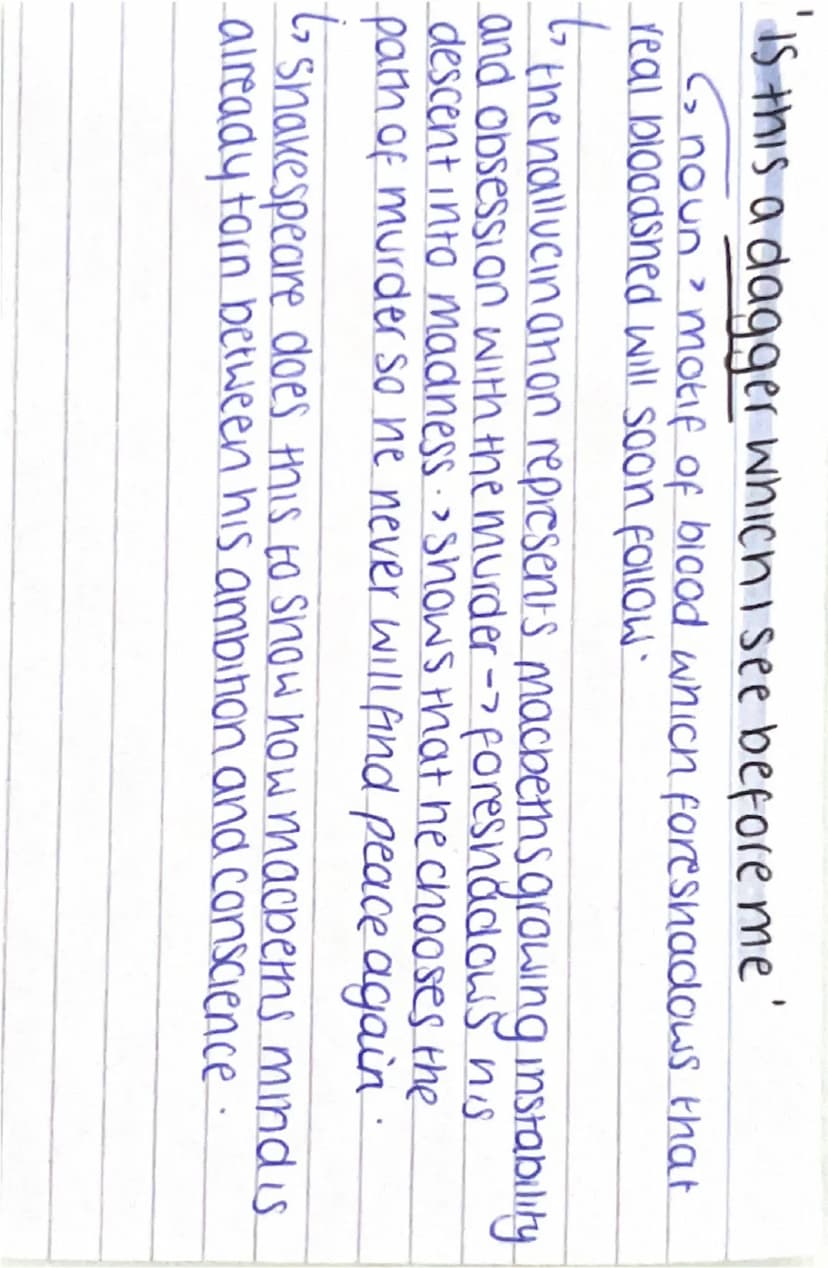 'Is this a dagger which I see before me'
↳ noun > motif of blood which foreshadows that
real bloodshed will soon follow.
↳ the hallucination represents macbeths growing instability
and obsession with the murder -> foreshadows his
descent into madness. > shows that he chooses the
path of murder so he never will find peace again.
↳ Shakespeare does this to show how macbeths mind is
already torn between his ambition and conscience.